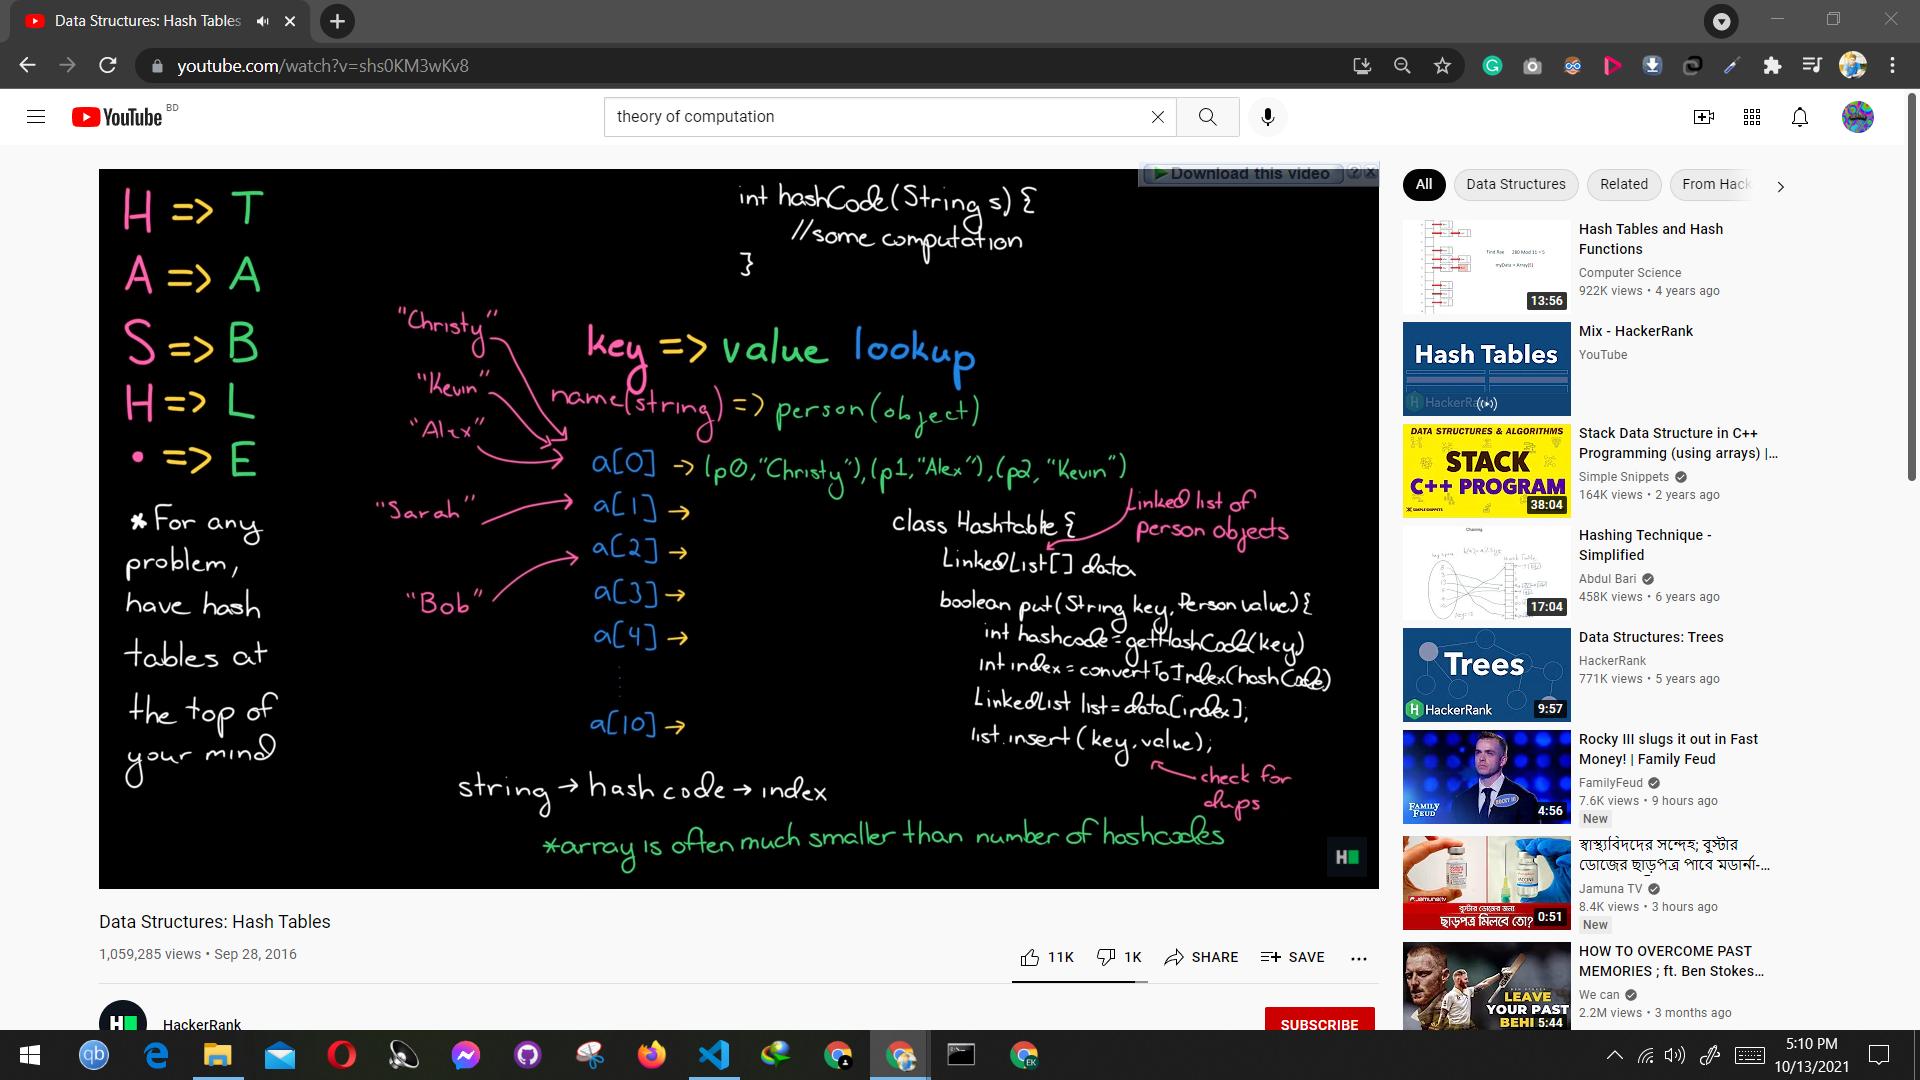 Data Structures: Hash Tables
youtube.com/watch?v=shs0KM3wKv8
YouTube BD
theory of computation
Download this video
H => T
A => A
S => B
H => L
• => E
* For any
problem,
have hash
tables at
the top of
your mind
int hashCode(String s) {
//some computation
}
key => value lookup
name(string) => person(object)
"Christy"
"Kevin"
"Alex"
"Sarah"
"Bob"
a[0] -> (p0,"Christy"),(p1,"Alex"),(p2,"Kevin")
a[1] →
a[2] →
a[3] →
a[4] →
a[10] →
Linked list of
person objects
class Hashtable {
LinkedList[] data
boolean put(String key, Person value) {
int hashcode = getHashCode(key)
int index = convertToIndex(hashCode)
LinkedList list = data[index];
list.insert(key, value);
check for
dups
string → hash code → index
*array is often much smaller than number of hashcodes
H
Data Structures: Hash Tables
1,059,285 views • Sep 28, 2016
11K
1K
SHARE
SAVE
HackerRank
SUBSCRIBE
All
Data Structures
Related
From Hack
Find Rae 280 Mod 11 = 5
myData = Array(5)
13:56
Hash Tables and Hash
Functions
Computer Science
922K views • 4 years ago
Hash Tables
Mix - HackerRank
YouTube
DATA STRUCTURES & ALGORITHMS
STACK
C++ PROGRAM
SIMPLE SNIPPETS
38:04
Stack Data Structure in C++
Programming (using arrays) |...
Simple Snippets
164K views • 2 years ago
Chaining
17:04
Hashing Technique -
Simplified
Abdul Bari
458K views • 6 years ago
Trees
HackerRank
9:57
Data Structures: Trees
HackerRank
771K views • 5 years ago
FAMILY
FEUD
4:56
Rocky III slugs it out in Fast
Money! | Family Feud
FamilyFeud
7.6K views • 9 hours ago
New
Jamuna TV
বুস্টার ডোজের জন্য
ছাড়পত্র মিলবে তো?
0:51
স্বাস্থ্যবিদদের সন্দেহ; বুস্টার
ডোজের ছাড়পত্র পাবে মডার্না-...
Jamuna TV
8.4K views • 3 hours ago
New
LEAVE
YOUR PAST
BEHI
5:44
HOW TO OVERCOME PAST
MEMORIES ; ft. Ben Stokes...
We can
2.2M views • 3 months ago
5:10 PM
10/13/2021